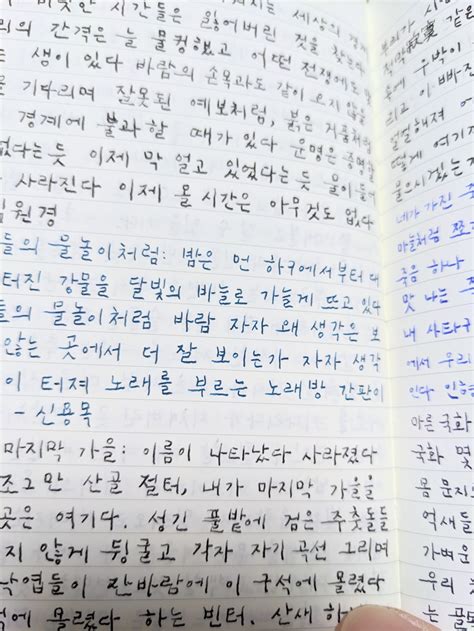 비롯한 시간들은 잃어버린 것을 찾는
의 간격은 늘 물컹했고 어떤 전쟁에도
생이 있다 바람의 손목과도 같이 오지 않을
기다리며 잘못된 예보처럼, 붉은 거품처럼
경계에 불과할 때가 있다 운명은 증명할
없다는 듯 이제 막 얼고 있었다는 듯 울이 들어
사라진다 이제 올 시간은 아무것도 없다
임원경
들의 물놀이처럼: 밤은 먼 하구에서부터 대
터진 강물을 달빛의 바늘로 가늘게 뜨고 있다
들의 물놀이처럼 바람 자자 왜 생각은 보
않는 곳에서 더 잘 보이는가 자자 생각
이 터져 노래를 부르는 노래방 간판이
- 신용목
마지막 가을: 이름이 나타났다 사라졌다
조그만 산골 절터, 내가 마지막 가을을
곳은 여기다. 성긴 풀밭에 검은 주춧돌들
지 않게 뒹굴고 각자 자기 곡선 그리며
낙엽들이 잔바람에 이 구석에 몰렸다
석에 몰렸다 하는 빈터. 산새 하
우박이
리고 이 빠진
떻게 여기
네가 가진
아들처럼
죽음 하나
맛 나는
내 사타구
에서 우리
있다
아픈 국화
국화 몇
몸 문지
억새들
가벼운
우리